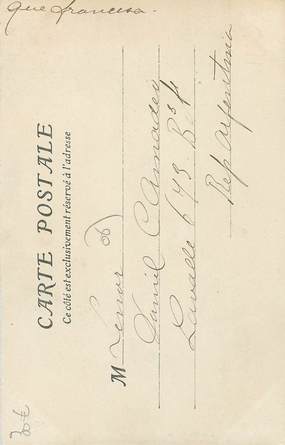 que francesa.
CARTE POSTALE
Ce côté est exclusivement réservé à l'adresse
M Senor
Daniel C Amadeo
Lavalle 643. Bs
Rep Argentina